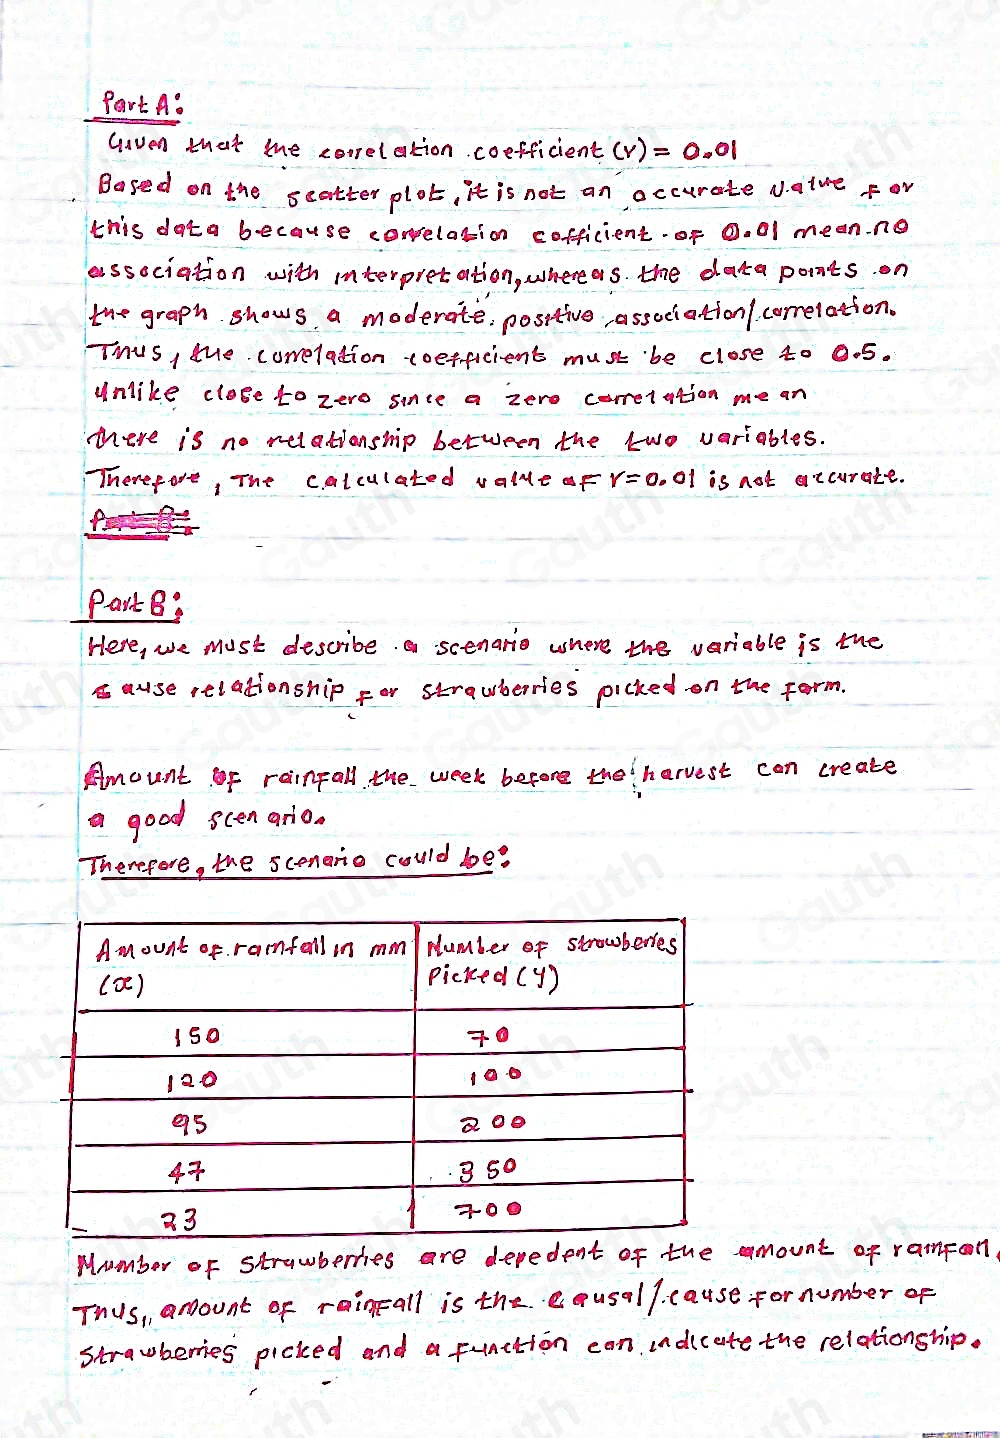 Part A:
Given that the correlation coefficient (r) = 0.01
Based on the scatter plot, it is not an accurate value for
this data because correlation cofficient of 0.01 mean no
association with interpretation, whereas the data points on
the graph shows a moderate positive association/correlation.
Thus, the correlation coefficient must be close to 0.5.
Unlike close to zero since a zero correlation mean
there is no relationship between the two variables.
Therefore, The calculated value of r=0.01 is not accurate.
Part B:
Here, we must describe a scenario where the variable is the
cause relationship for strawberries picked on the farm.
Amount of rainfall the week before the harvest can create
a good scenario.
Therefore, the scenario could be:
Amount of rainfall in mm Number of strawberies
(x) Picked (y)
150 70
120 100
95 200
47 350
23 700
Number of strawberries are depedent of the amount of rainfall.
Thus, amount of rainfall is the causal/cause for number of
strawberries picked and a function can indicate the relationship.